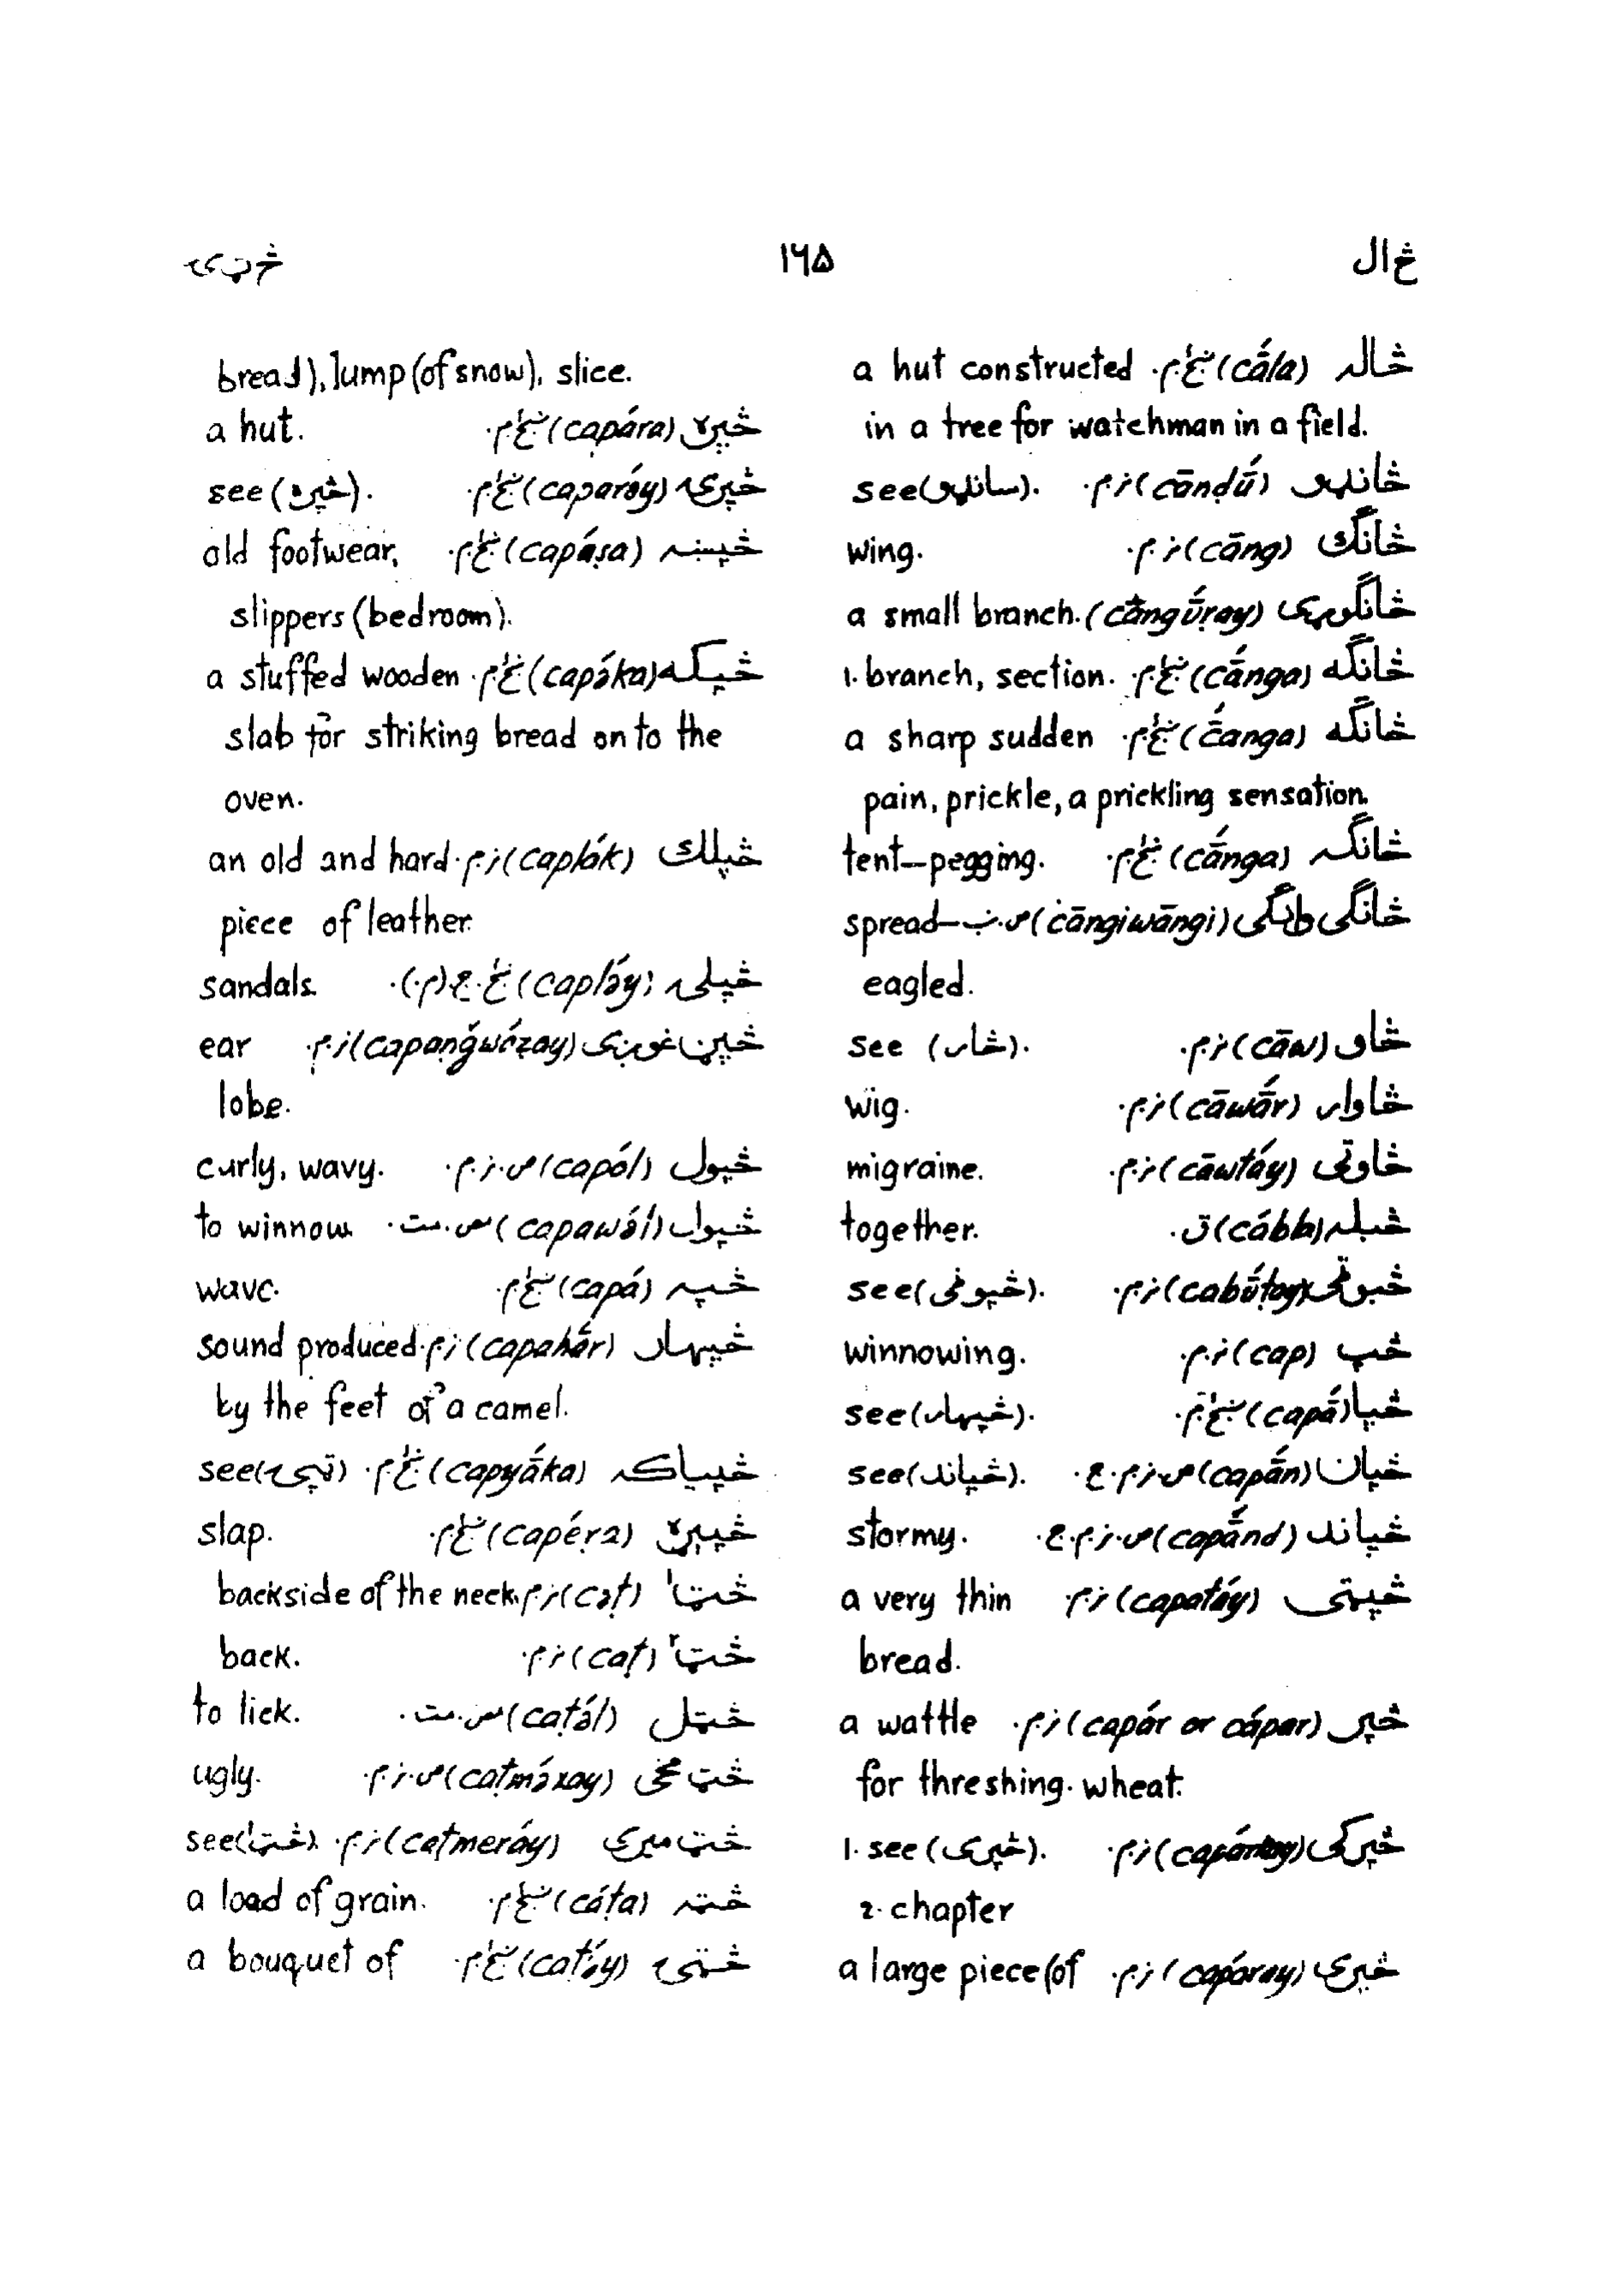 څ ال ۱۶۵ څ پ ۍ
څاله (cā́la) غ.ځ.م. a hut constructed
in a tree for watchman in a field.
څانډو (cānḍū́) ن.م. see (سانډو).
څانګ (cāng) ن.م. wing.
څانګوړی (cāngū́ṛay) a small branch.
څانګه (cā́nga) ښځ.م. 1. branch, section.
څانګه (cā́nga) ښځ.م. a sharp sudden
pain, prickle, a prickling sensation.
څانګه (cā́nga) ښځ.م. tent-pegging.
څانګی وانګی (cāngiwāngi) ص.ب. spread-
eagled.
څاو (cāw) ن.م. see (څار).
څاوار (cāwā́r) ن.م. wig.
څاوتی (cāwtáy) ن.م. migraine.
څبله (cábla) ق. together.
څبوټی (cabū́ṭay) ن.م. see (څپوټی).
څپ (cap) ن.م. winnowing.
څپا (capā́) ښځ.م. see (څپهار).
څپان (capā́n) ص.ن.م.ج. see (څپاند).
څپاند (capā́nd) ص.ن.م.ج. stormy.
څپتی (capatáy) ن.م. a very thin
bread.
څپر (capár or cápar) ن.م. a wattle
for threshing wheat.
څپرکی ن.م. 1. see (څپری).
2. chapter
څپری (capáray) ن.م. a large piece (of
bread), lump (of snow), slice.
څپره (capára) ښځ.م. a hut.
څپرۍ (caparə́y) ښځ.م. see (څپره).
څپښه (capáṣa) ښځ.م. old footwear,
slippers (bedroom).
څپکه (capə́ka) ښځ.م. a stuffed wooden
slab for striking bread on to the
oven.
څپلک (caplák) ن.م. an old and hard
piece of leather.
څپلۍ (caplə́y) ښځ.ج.(م.). sandals.
ن.م. ear
lobe.
څپول (capól) ص.ن.م. curly, wavy.
څپول (capawə́l) مص.مت. to winnow.
څپه (capá) ښځ.م. wave.
څپهار (capahā́r) ن.م. sound produced
by the feet of a camel.
څپیاکه (capyā́ka) ښځ.م. see (ټپۍ)
څپېړه (capéṛa) ښځ.م. slap.
څټ۱ (cəṭ) ن.م. backside of the neck,
back. څټ۲ (caṭ) ن.م.
څټل (caṭə́l) مص.مت. to lick.
څټ مخی (caṭmə́xay) ص.ن.م. ugly.
څټ میری (caṭmeráy) ن.م. see (څټ۱).
څټه (cáṭa) ښځ.م. a load of grain.
څټۍ (caṭə́y) ښځ.م. a bouquet of